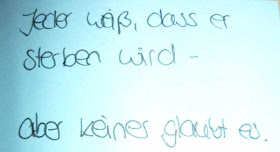 Jeder weiß, dass er
sterben wird -
aber keiner glaubt es.